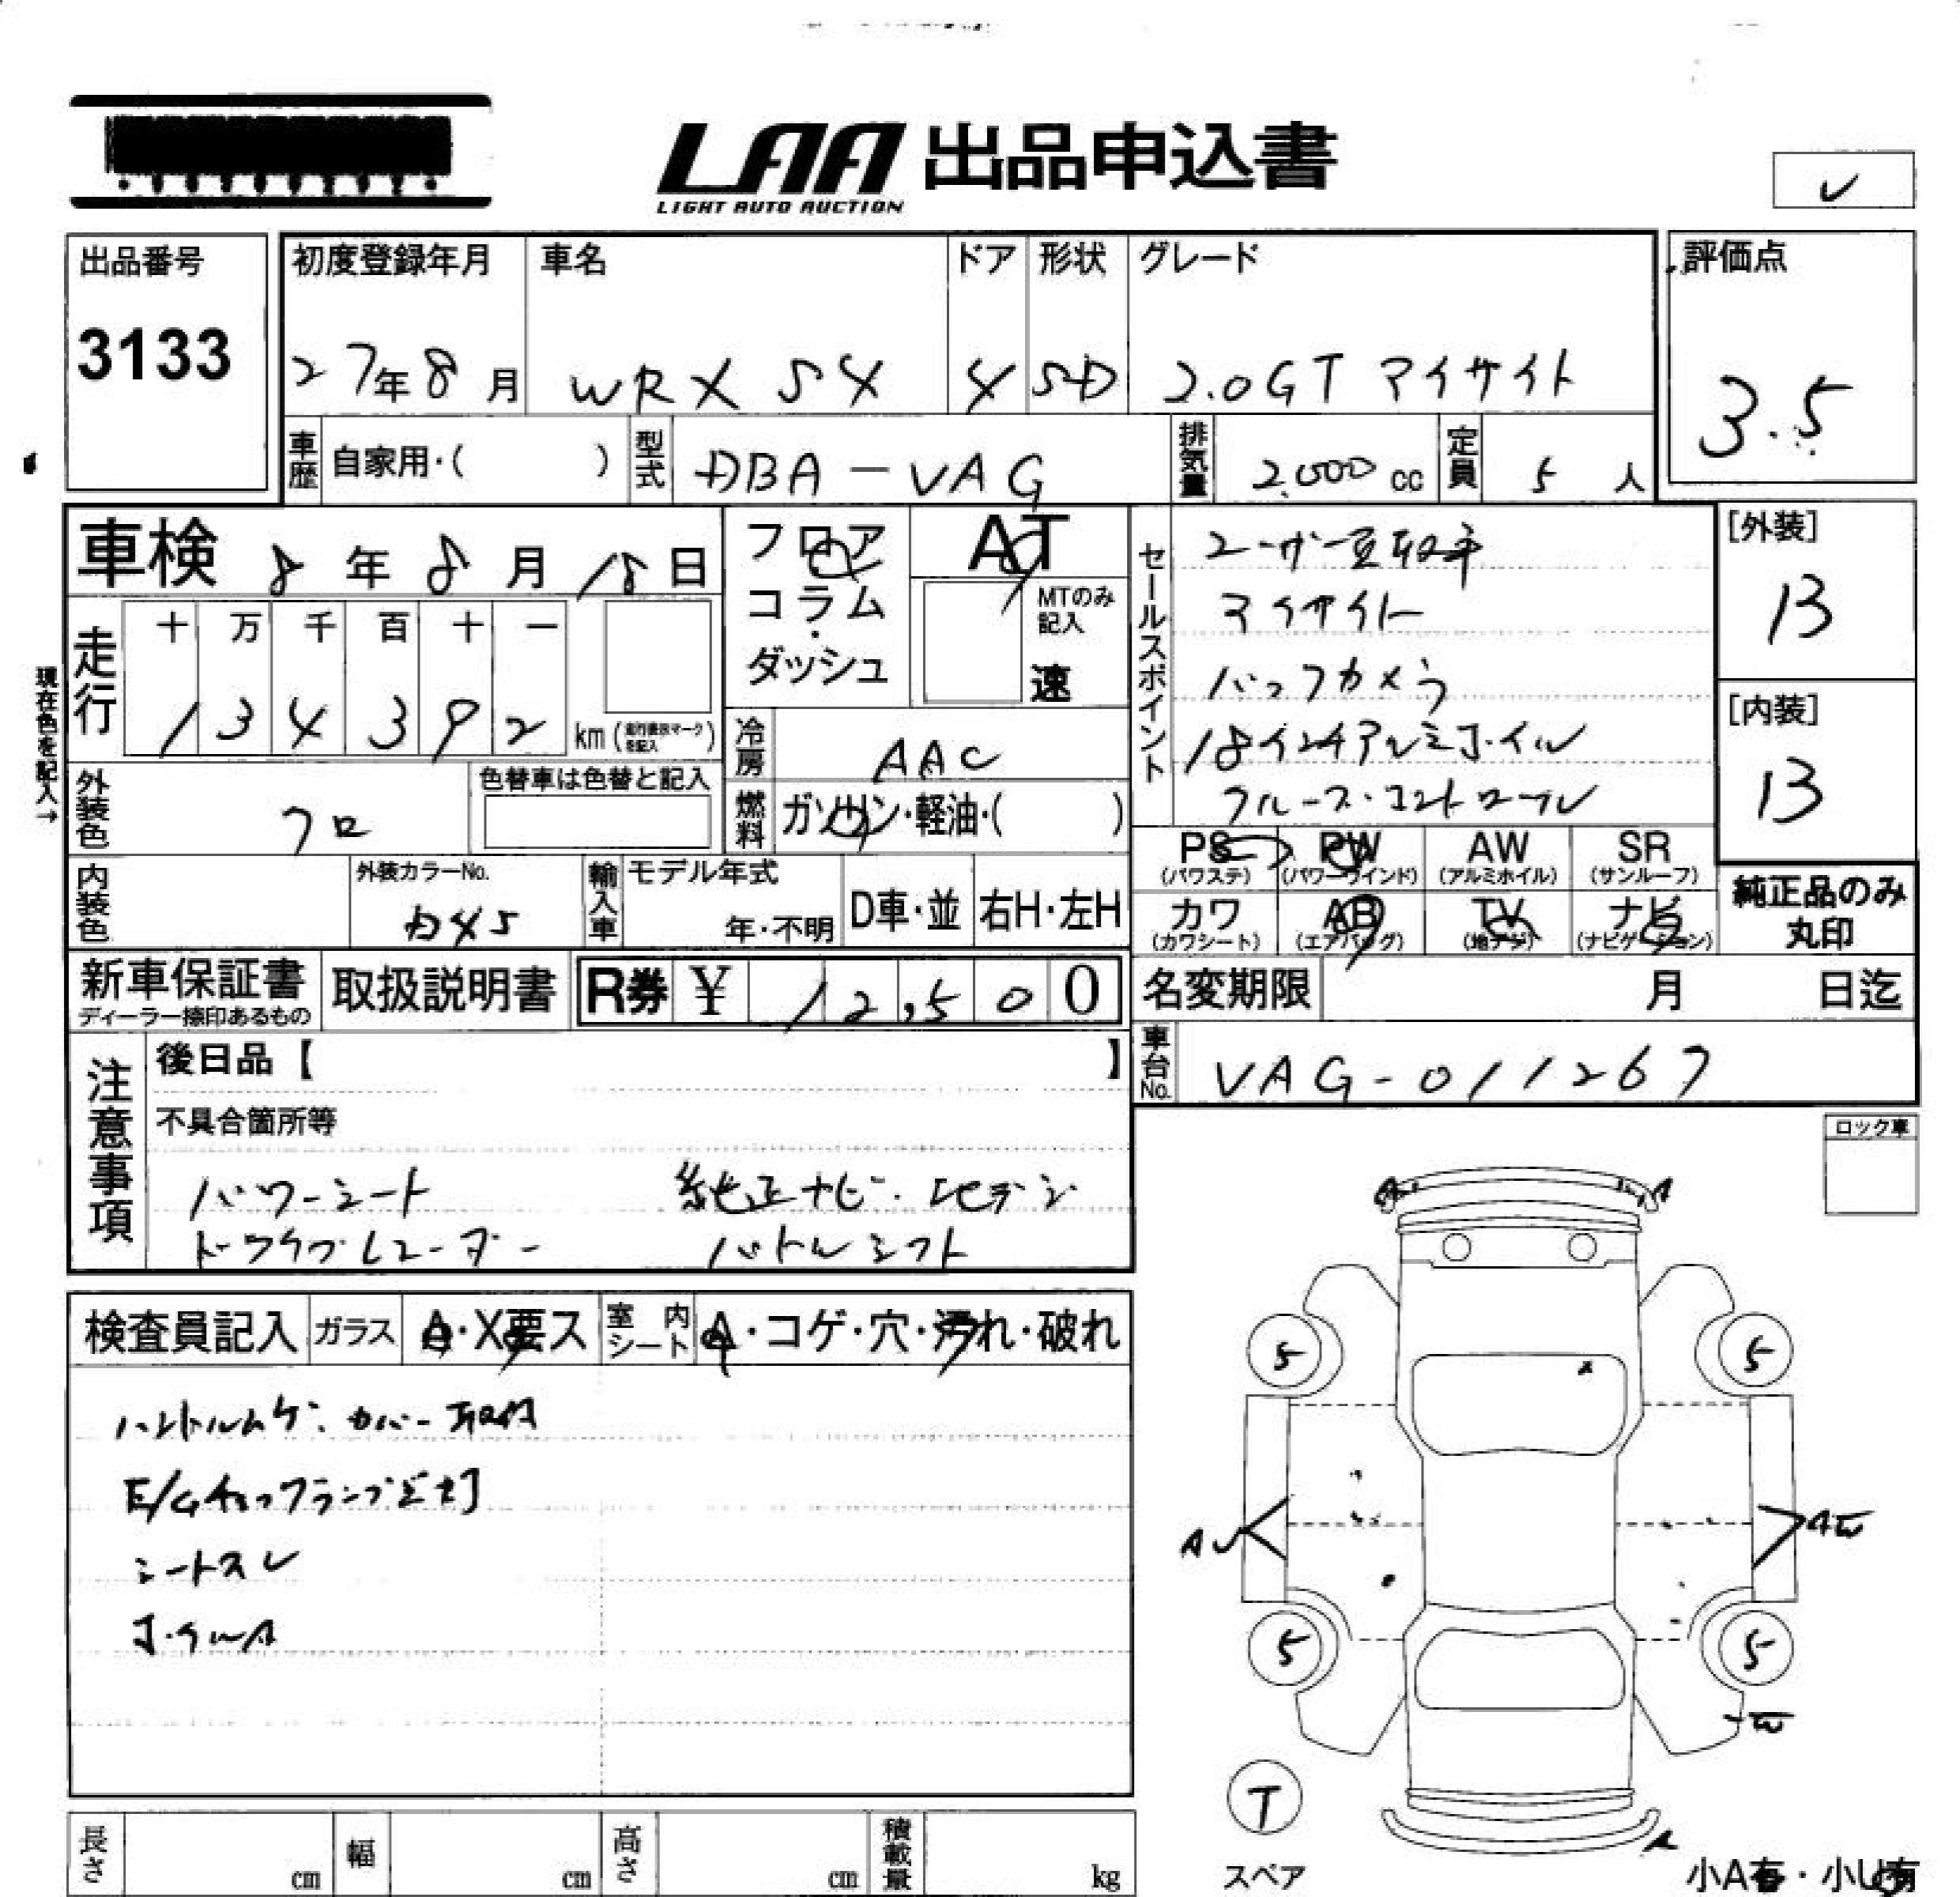 LAA 出品申込書
LIGHT AUTO AUCTION
出品番号
3133
初度登録年月
27年8月
車名
WRX S4
ドア
4
形状
SD
グレード
2.0GT アイサイト
評価点
3.5
車歴 自家用・( )
型式 DBA-VAG
排気量 2,000 cc
定員 5 人
車検 8年8月18日
フロア
コラム
・
ダッシュ
AT
MTのみ
記入
速
セールスポイント
ユーザー買取車
アイサイト
バックカメラ
18インチアルミホイル
クルーズ・コントロール
[外装]
13
[内装]
13
現在色を記入→
走行
十 万 千 百 十 一
1 3 4 3 9 2
km( )
冷房 AAC
燃料 ガソリン・軽油・( )
外装色 クロ
色替車は色替と記入
内装色
外装カラーNo.
D4S
輸入車
モデル年式
年・不明
D車・並
右H・左H
PS
(パワステ)
PW
(パワーウインド)
AW
(アルミホイル)
SR
(サンルーフ)
カワ
(カワシート)
AB
(エアバッグ)
TV
(地デジ)
ナビ
(ナビゲーション)
純正品のみ
丸印
新車保証書
ディーラー捺印あるもの
取扱説明書
R券 ¥ 12,500
名変期限 月 日迄
車台No. VAG-011267
注意事項
後日品【 】
不具合箇所等
パワーシート 純正ナビ・地デジ
ドライブレコーダー パドルシフト
ロック車
検査員記入
ガラス A・X要ス
室内シート A・コゲ・穴・汚れ・破れ
ハンドルムケ・カバー取付
E/Gチェックランプ点灯
シートスレ
ホイルA
A
A
5
5
AU
AW
5
5
W
T
スペア
A
小A有・小U有
長さ cm
幅 cm
高さ cm
積載量 kg